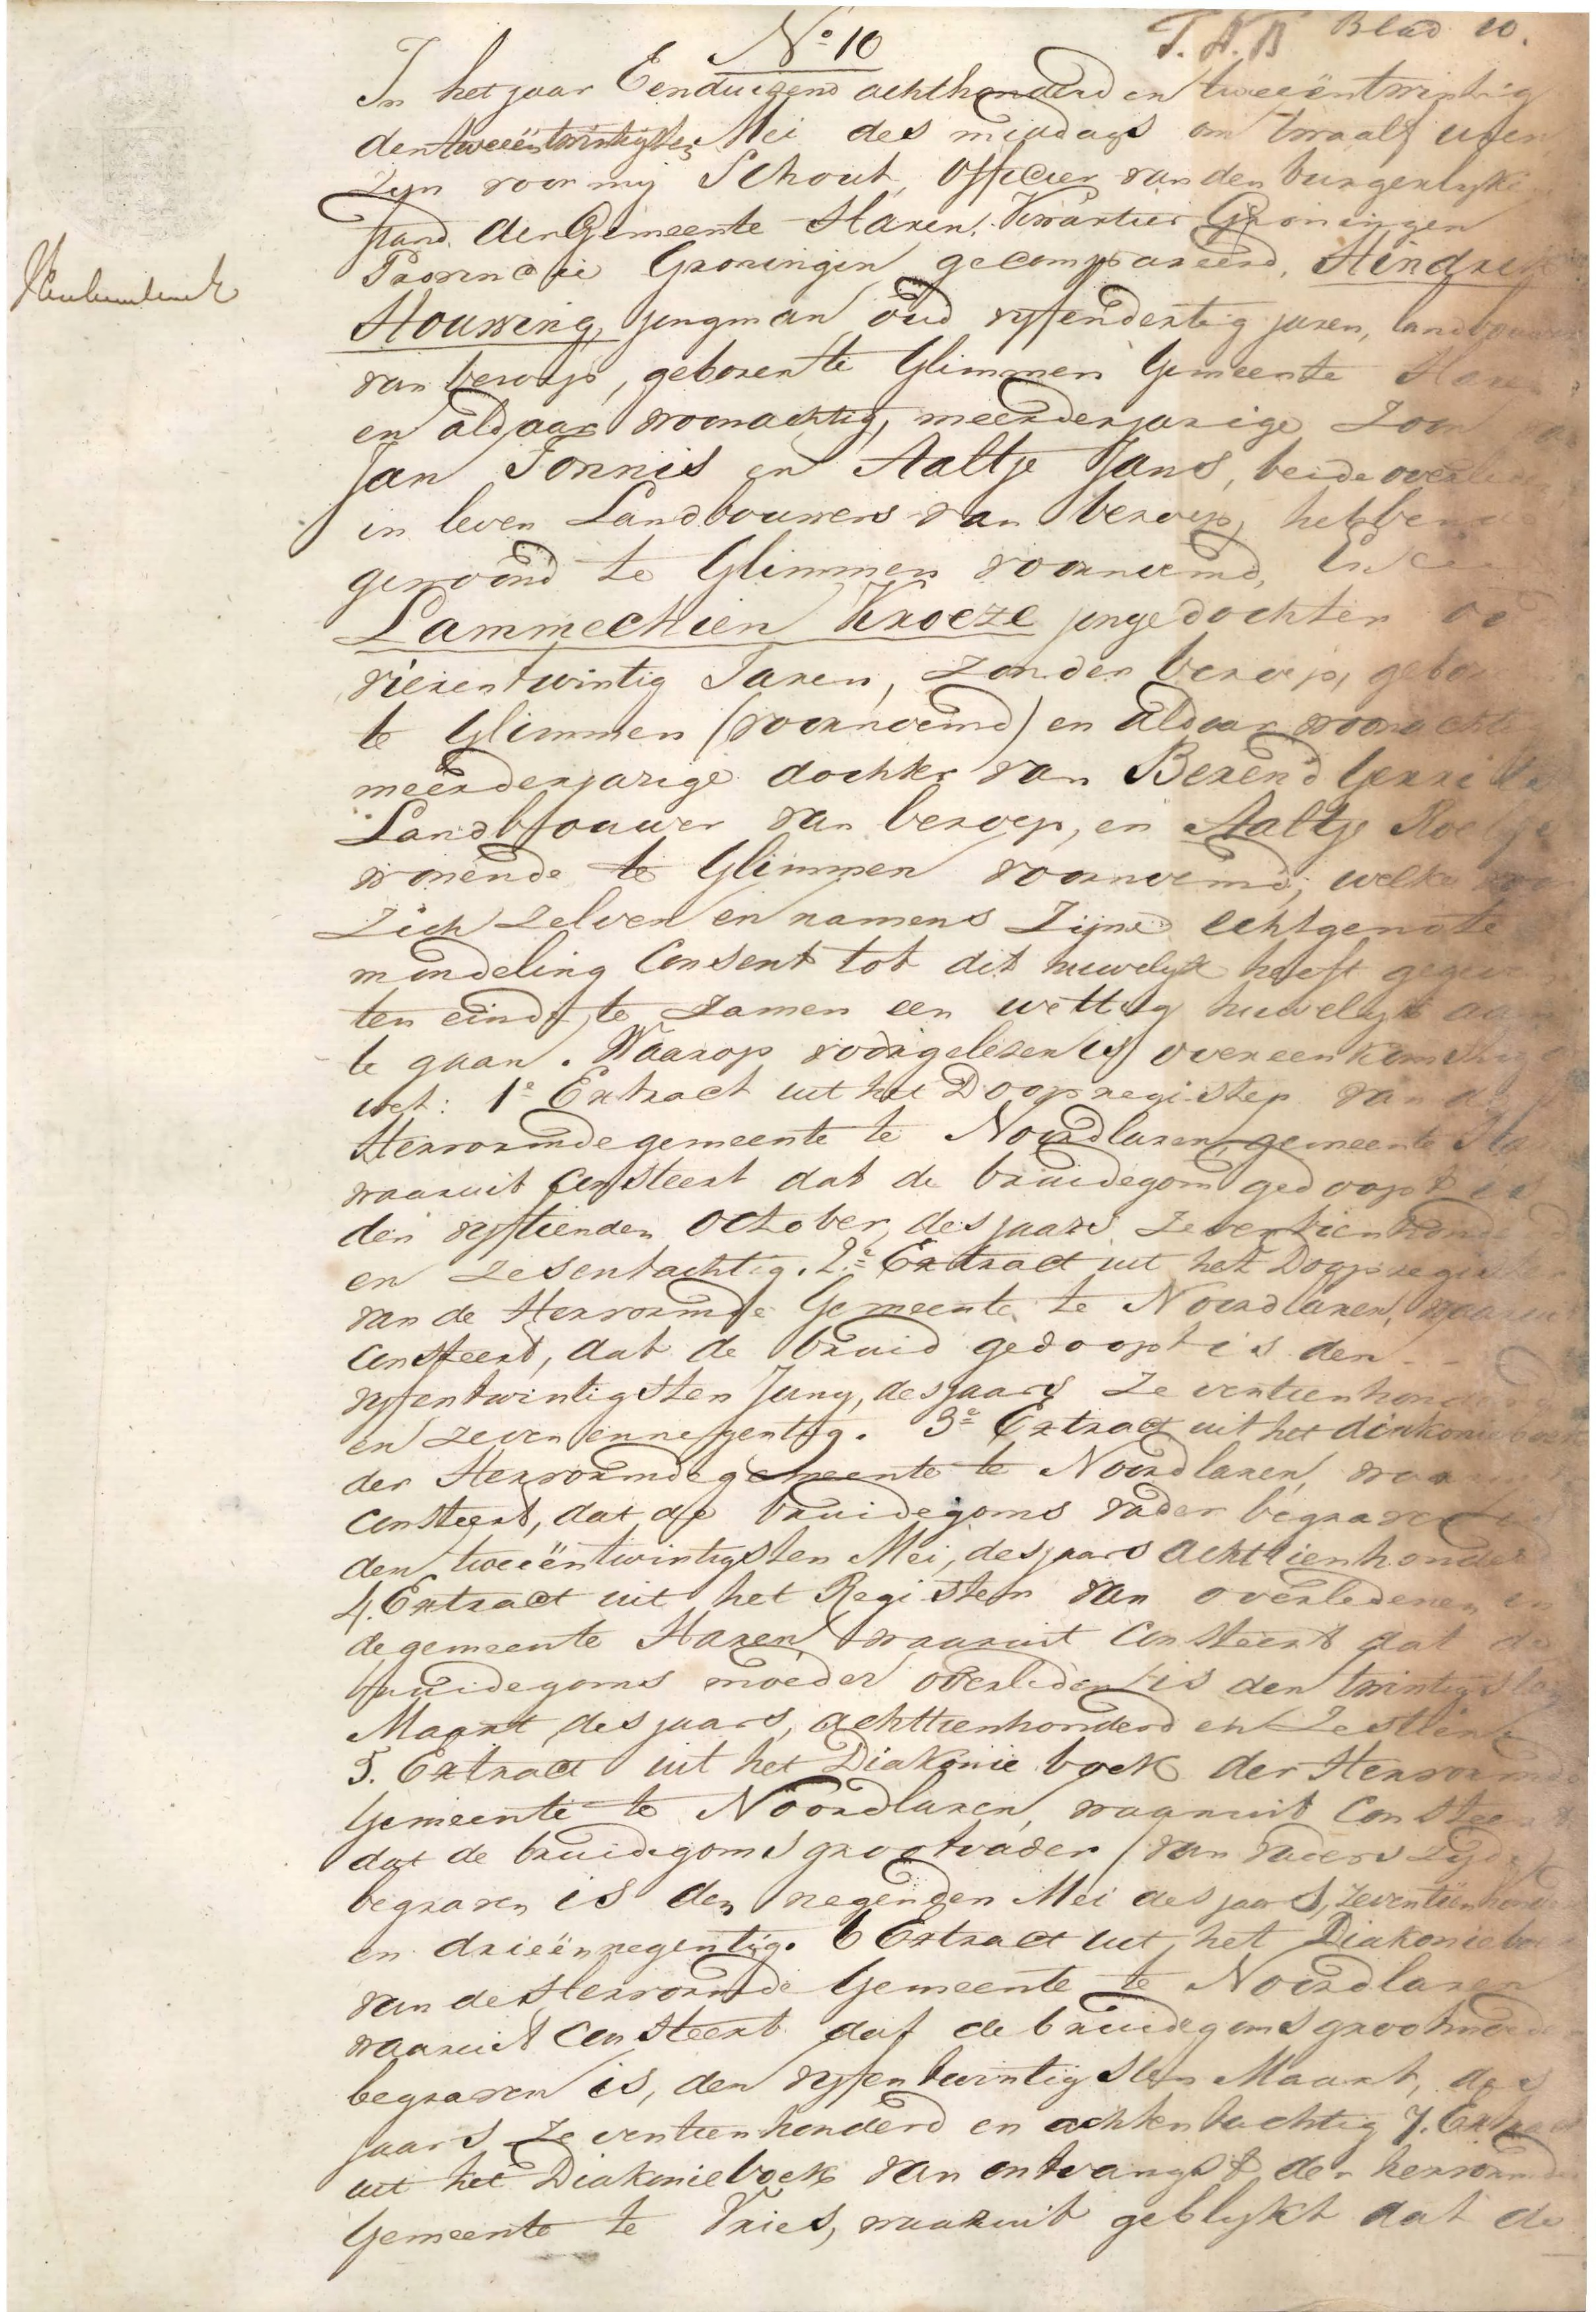 No 10
Blad 10.
In het jaar Eenduizend achthonderd en tweeëntwintig
den tweeëntwintigsten Mei des middags om twaalf uren
zyn voor my Schout, Officier van den burgerlyke
stand der Gemeente Haren, Kwartier Groningen
Provincie Groningen gecompareerd, Hindrik
Houwing, jongman oud vyfendertig jaren, landbouwer
van beroep, geboren te Glimmen Gemeente Haren
en aldaar woonachtig, meerderjarige zoon van
Jan Tonnis en Aaltje Jans, beide overleden
in leven Landbouwers van beroep, hebbende
gewoond te Glimmen voornoemd, En
Lammechien Kroeze jongedochter
vierentwintig Jaren, zonder beroep, gebor
te Glimmen (voornoemd) en aldaar woonachti
meerderjarige dochter van Berend Gerrits
Landbouwer van beroep, en Aaltje
wonende te Glimmen voornoemd, welke voor
zich zelven en namens zijne echtgenote
mondeling Consent tot dit huwelyk heeft gegeven
ten einde te zamen een wettig huwelyk aan
te gaan. Waarop voorgelezen is overeenkomstig
wet: 1e Extract uit het Doopregister van de
Hervormde gemeente te Noordlaren, gemeente Ha
waaruit Consteert dat de bruidegom gedoopt is
den vyftienden October, des jaars zeventienhonderd
en zesentachtig. 2e Extract uit het Doopregister
van de Hervormde Gemeente te Noordlaren, waaruit
Consteert, dat de bruid gedoopt is den --
vyfentwintigsten Juny, des jaars zeventienhonderd
en zevenennegentig. 3e Extract uit het diakonieboek
der Hervormde gemeente te Noordlaren, waaruit
Consteert, dat de bruidegoms vader begraven is
den tweeëntwintigsten Mei, des jaars achttienhonderd
4. Extract uit het Register van overledenen in
de gemeente Haren, waaruit Consteert dat de
bruidegoms moeder overleden is den twintigsten
Maart des jaars, achttienhonderd en zestien
5. Extract uit het Diakonie boek der Hervormde
Gemeente te Noordlaren, waaruit Consteert
dat de bruidegoms grootvader (van vaders zyde)
begraven is den negenden Mei des jaars, zeventienhonderd
en drieënnegentig. 6 Extract uit het Diakonieboek
van de Hervormde Gemeente te Noordlaren
waaruit Consteert dat de bruidegoms grootmoeder
begraven is, den vyfentwintigsten Maart, des
jaars zeventienhonderd en achtentachtig 7. Extract
uit het Diakonieboek van ontvangst der hervormde
Gemeente te Vries, waaruit geblykt dat de